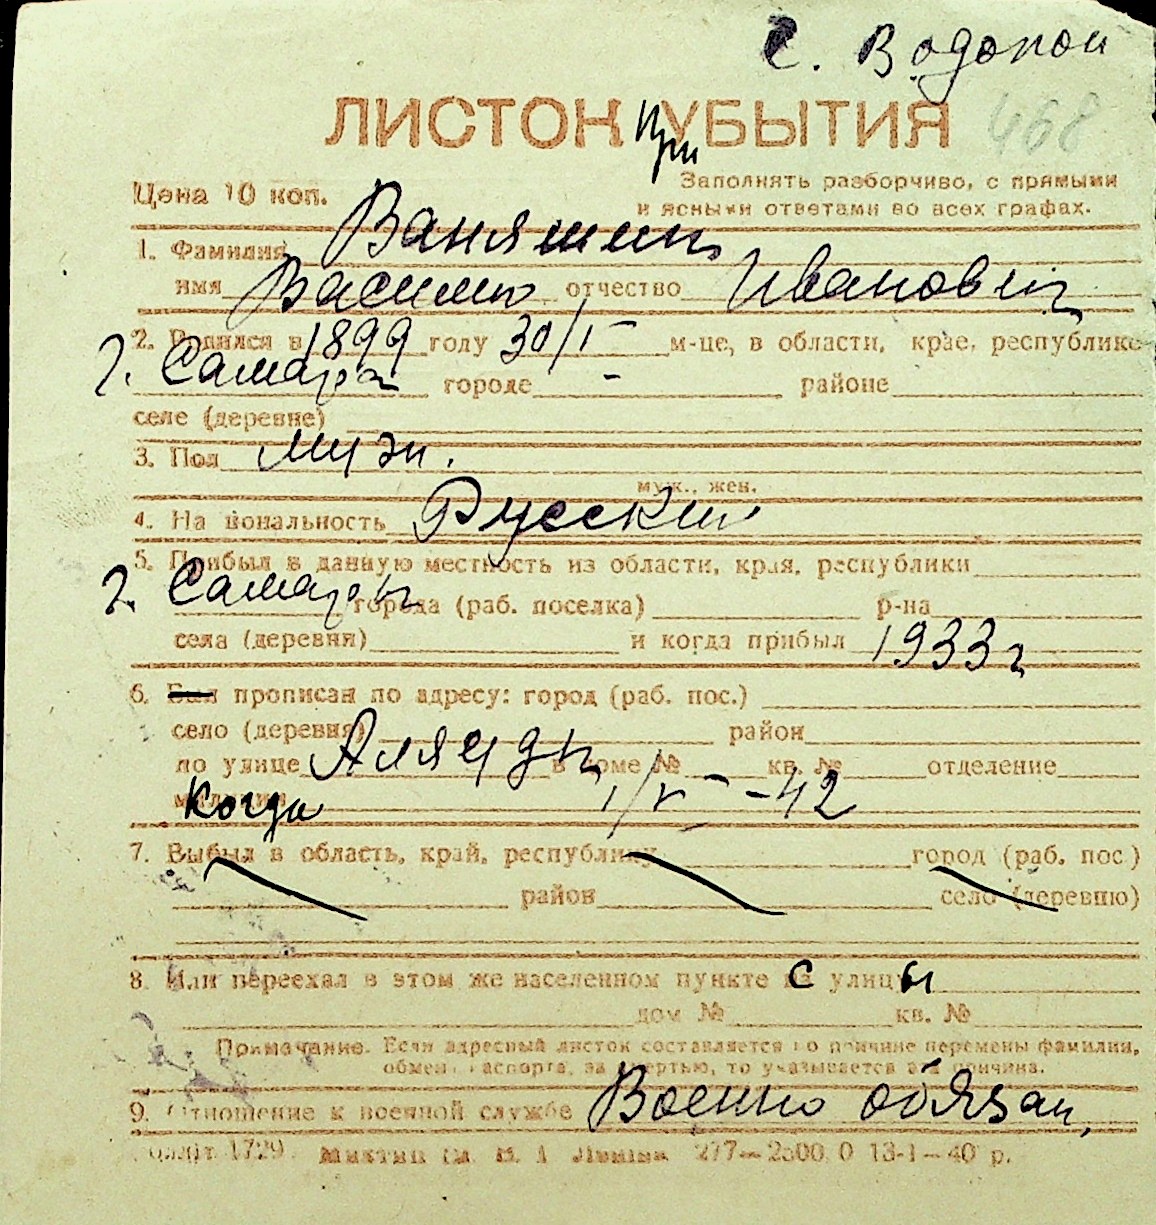 с. Водопой
ЛИСТОК при УБЫТИЯ
468
Заполнять разборчиво, с прямыми
Цена 10 коп.
и ясными ответами во всех графах.
1. Фамилия Ваняшин
имя Василию отчество Иванович
2. Родился в 1899 году 30/I м-це, в области, крае, республике
г. Самара городе - районе
селе (деревне)
3. Пол муж.
муж., жен.
4. Национальность Русский
5. Прибыл в данную местность из области, края, республики
г. Самары города (раб. поселка) р-на
села (деревня) и когда прибыл 1933 г
6. Был прописан по адресу: город (раб. пос.)
село (деревня) район
по улице в доме № кв. № отделение
милиции Когда -42
7. Выбыл в область, край, республику город (раб. пос.)
район село (деревню)
8. Или переехал в этом же населенном пункте с улицы
дом № кв. №
Примечание. Если адресный листок составляется по причине перемены фамилии,
обмена паспорта, за смертью, то указывается эта причина.
9. Отношение к военной службе Военно обязан.
1729 277—2500 0 13-1—40 р.